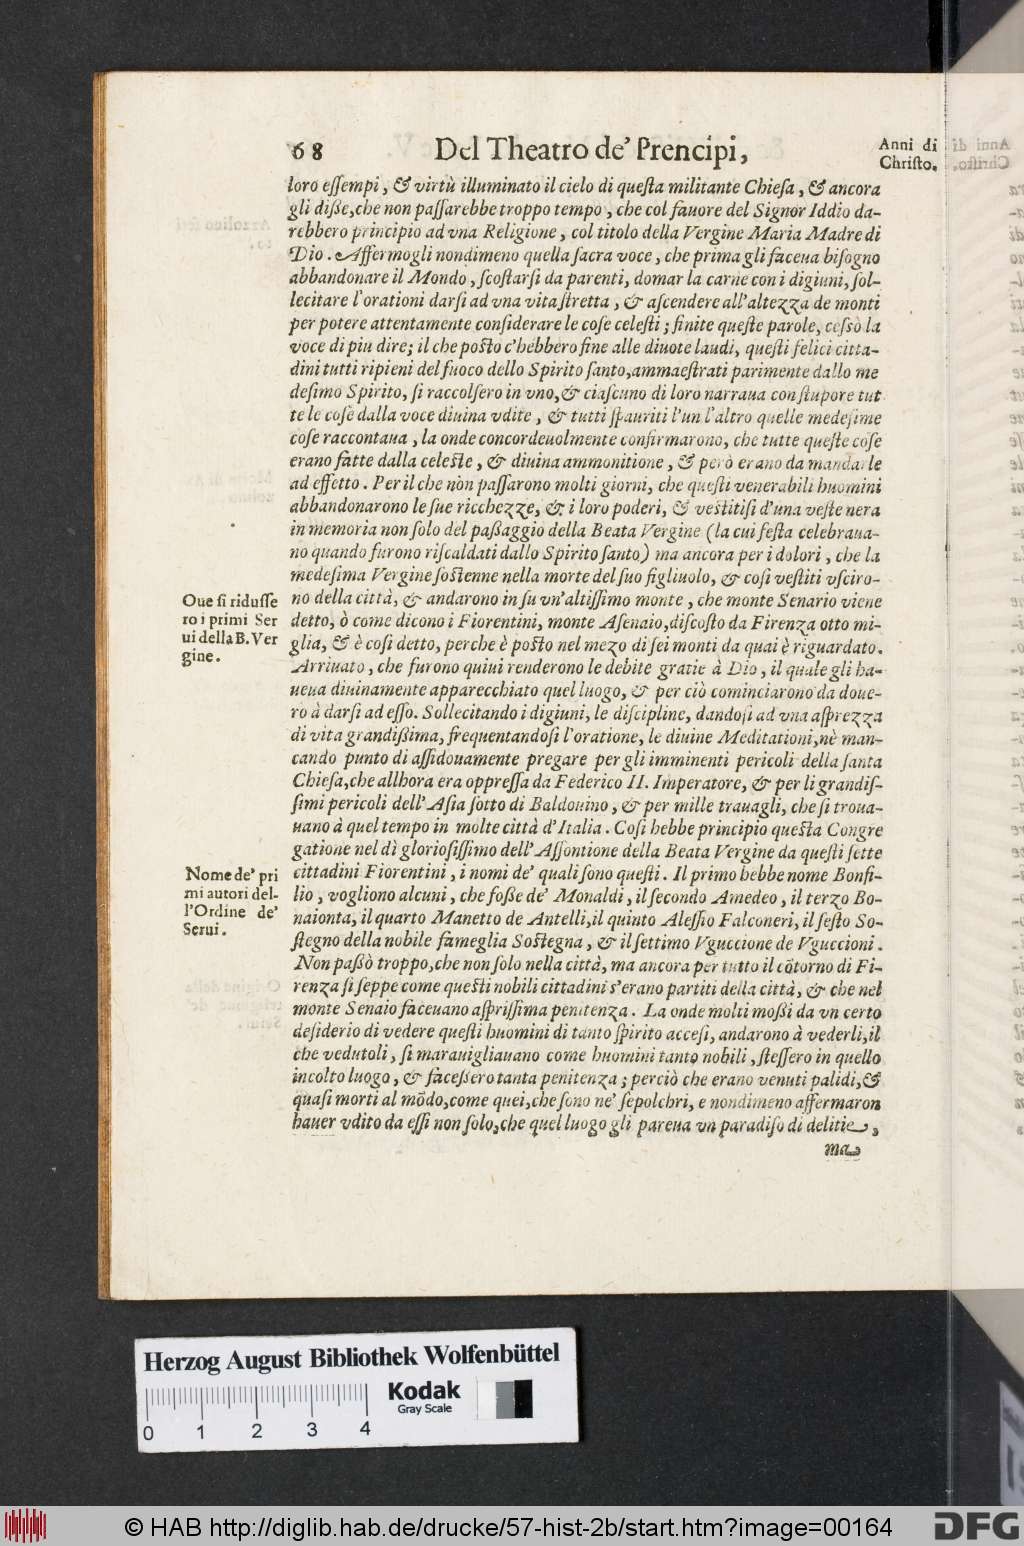 68 Del Theatro de' Prencipi,
Anni di
Christo.
loro eſſempi, & virtù illuminato il cielo di queſta militante Chieſa, & ancora
gli diße, che non paſſarebbe troppo tempo, che col fauore del Signor Iddio da-
rebbero principio ad vna Religione, col titolo della Vergine Maria Madre di
Dio. Affermogli nondimeno quella ſacra voce, che prima gli faceua biſogno
abbandonare il Mondo, ſcoſtarſi da parenti, domar la carne con i digiuni, ſol-
lecitare l'orationi darſi ad vna vita ſtretta, & aſcendere all'altezza de monti
per potere attentamente conſiderare le coſe celeſti; finite queſte parole, ceſsò la
voce di piu dire; il che poſto c'hebbero fine alle diuote laudi, queſti felici citta-
dini tutti ripieni del fuoco dello Spirito ſanto, ammaeſtrati parimente dallo me
deſimo Spirito, ſi raccolſero in vno, & ciaſcuno di loro narraua con ſtupore tut
te le coſe dalla voce diuina vdite, & tutti ſpauriti l'un l'altro quelle medeſime
coſe raccontaua, la onde concordeuolmente confirmarono, che tutte queſte coſe
erano fatte dalla celeſte, & diuina ammonitione, & però erano da mandarle
ad effetto. Per il che nòn paſſarono molti giorni, che queſti venerabili huomini
abbandonarono le ſue ricchezze, & i loro poderi, & veſtitiſi d'una veſte nera
in memoria non ſolo del paßaggio della Beata Vergine (la cui feſta celebraua-
no quando furono riſcaldati dallo Spirito ſanto) ma ancora per i dolori, che la
medeſima Vergine ſoſtenne nella morte del ſuo figliuolo, & coſi veſtiti vſciro-
no della città, & andarono in ſu vn'altiſſimo monte, che monte Senario viene
detto, ò come dicono i Fiorentini, monte Aſenaio, diſcoſto da Firenza otto mi-
glia, & è coſi detto, perche è poſto nel mezo di ſei monti da quai è riguardato.
Arriuato, che furono quiui renderono le debite gratie à Dio, il quale gli ha-
ueua diuinamente apparecchiato quel luogo, & per ciò cominciarono da doue-
ro à darſi ad eſſo. Sollecitando i digiuni, le diſcipline, dandoſi ad vna aſprezza
di vita grandißima, frequentandoſi l'oratione, le diuine Meditationi, nè man-
cando punto di aſſidouamente pregare per gli imminenti pericoli della ſanta
Chieſa, che allhora era oppreſſa da Federico II. Imperatore, & per li grandiſ-
ſimi pericoli dell'Aſia ſotto di Baldouino, & per mille trauagli, che ſi troua-
uano à quel tempo in molte città d'Italia. Coſi hebbe principio queſta Congre
gatione nel dì glorioſiſſimo dell'Aſſontione della Beata Vergine da queſti ſette
cittadini Fiorentini, i nomi de' quali ſono queſti. Il primo hebbe nome Bonfi-
lio, vogliono alcuni, che foße de' Monaldi, il ſecondo Amedeo, il terzo Bo-
naionta, il quarto Manetto de Antelli, il quinto Aleſſio Falconeri, il ſeſto So-
ſtegno della nobile fameglia Soſtegna, & il ſettimo Vguccione de Vguccioni.
Non paßò troppo, che non ſolo nella città, ma ancora per tutto il cōtorno di Fi-
renza ſi ſeppe come queſti nobili cittadini s'erano partiti della città, & che nel
monte Senaio faceuano aſpriſſima penitenza. La onde molti moßi da vn certo
deſiderio di vedere queſti huomini di tanto ſpirito acceſi, andarono à vederli, il
che vedutoli, ſi marauigliauano come huomini tanto nobili, ſteſſero in quello
incolto luogo, & faceßero tanta penitenza; perciò che erano venuti palidi, &
quaſi morti al mōdo, come quei, che ſono ne' ſepolchri, e nondimeno affermaron
hauer vdito da eſſi non ſolo, che quel luogo gli pareua vn paradiſo di delitie,
ma
Oue ſi riduſſe
ro i primi Ser
ui della B. Ver
gine.
Nome de' pri
mi autori del-
l'Ordine de'
Serui.
Herzog August Bibliothek Wolfenbüttel
Kodak
Gray Scale
0 1 2 3 4
© HAB http://diglib.hab.de/drucke/57-hist-2b/start.htm?image=00164
DFG